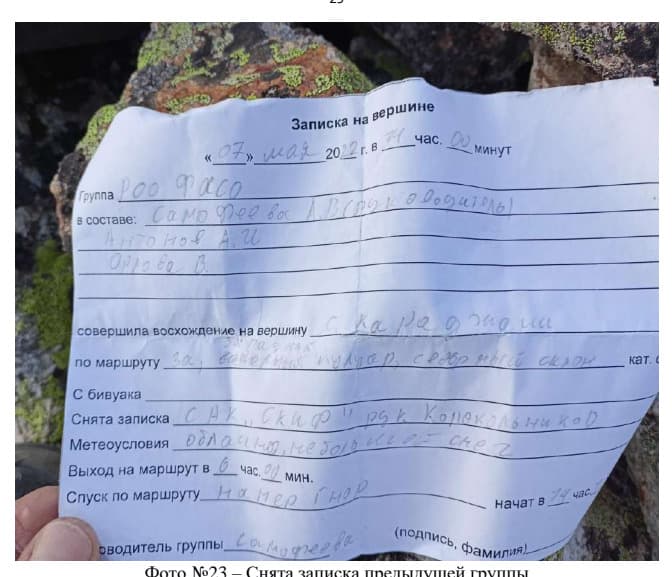 23
Записка на вершине
« 07 » мая 2022 г. в 11 час. 00 минут
Группа РОО ФАСО
в составе: Самофеева А.В (руководитель)
Антонов А.И
Орлова В.
совершила восхождение на вершину с. Караджаш
по маршруту западный кулуар, северный склон кат. с
С бивуака
Снята записка САК "Скиф" рук Колокольников
Метеоусловия облачно, небольшой снег
Выход на маршрут в 6 час. 00 мин.
Спуск по маршруту на пер Гнор начат в час.
оводитель группы Самофеева (подпись, фамилия)
Фото №23 – Снята записка предыдущей группы